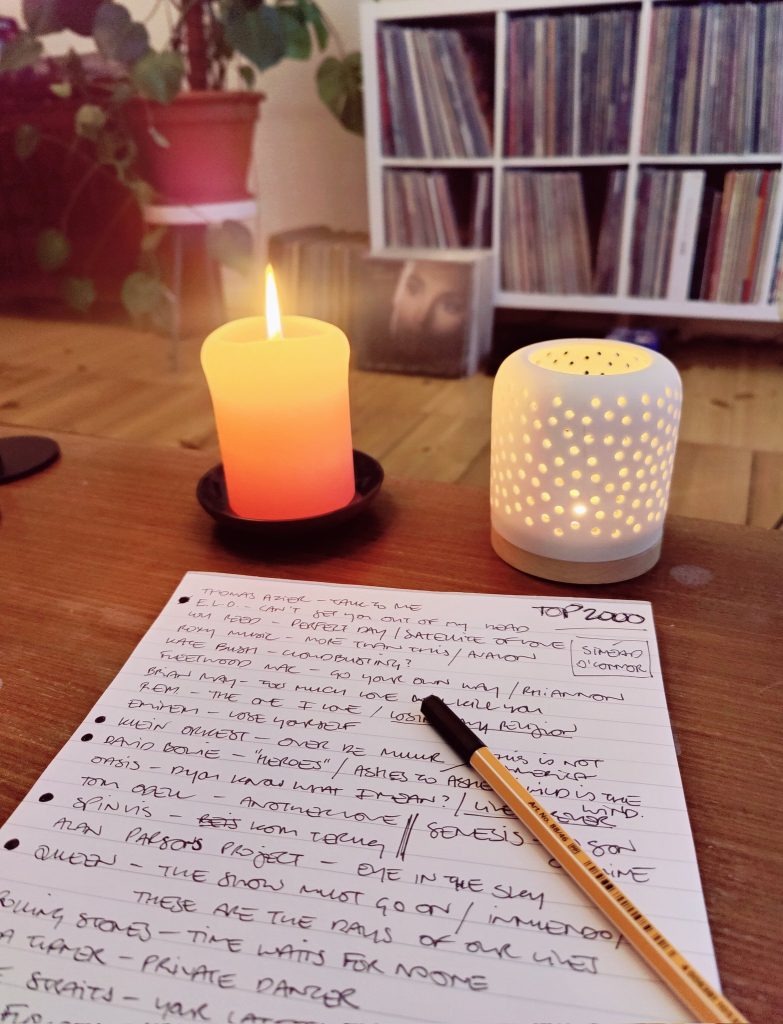 TOP 2000
SINÉAD
O'CONNOR
THOMAS AZIER - TALK TO ME
E.L.O. - CAN'T GET YOU OUT OF MY HEAD
LOU REED - PERFECT DAY / SATELLITE OF LOVE
ROXY MUSIC - MORE THAN THIS / AVALON
KATE BUSH - CLOUDBUSTING?
FLEETWOOD MAC - GO YOUR OWN WAY / RHIANNON
BRIAN MAY - TOO MUCH LOVE WILL KILL YOU
REM - THE ONE I LOVE / LOSING MY RELIGION
EMINEM - LOSE YOURSELF
KLEIN ORKEST - OVER DE MUUR / THIS IS NOT AMERICA
DAVID BOWIE - "HEROES" / ASHES TO ASHES / WILD IS THE WIND.
OASIS - D'YOU KNOW WHAT I MEAN? / LIVE FOREVER
TOM ODELL - ANOTHER LOVE // GENESIS - SON
SPINVIS - KOM TERUG
ALAN PARSONS PROJECT - EYE IN THE SKY
QUEEN - THE SHOW MUST GO ON / INNUENDO /
THESE ARE THE DAYS OF OUR LIVES
ROLLING STONES - TIME WAITS FOR NO ONE
A TURNER - PRIVATE DANCER
STRAITS - YOUR LATEST
Art. No. 88/46